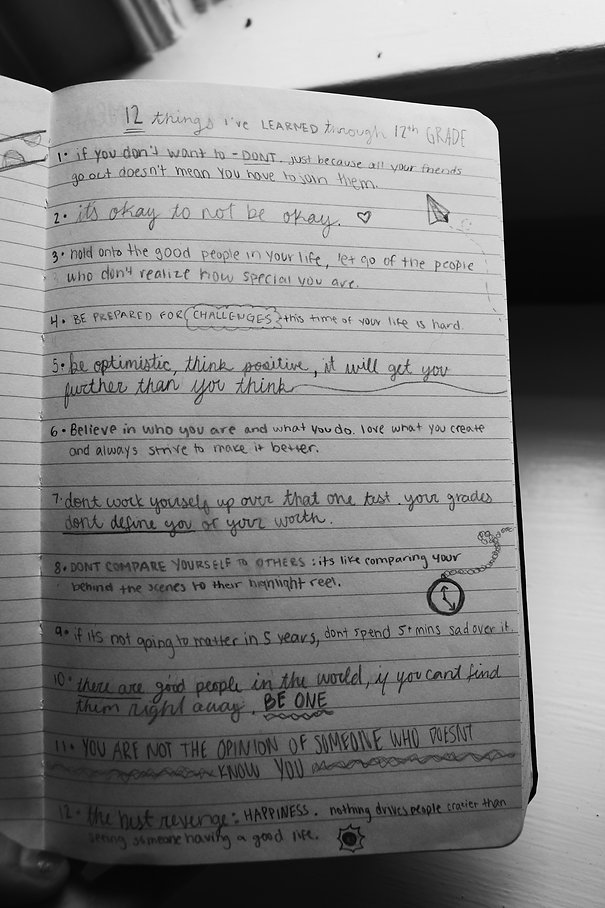 12 things I've LEARNED through 12th GRADE
1. if you don't want to - DONT. just because all your friends
go out doesn't mean you have to join them.
2. it's okay to not be okay. ♡
3. hold onto the good people in your life, let go of the people
who don't realize how special you are.
4. BE PREPARED FOR CHALLENGES this time of your life is hard.
5. be optimistic, think positive, it will get you
further than you think
6. Believe in who you are and what you do. love what you create
and always strive to make it better.
7. dont work yourself up over that one test. your grades
dont define you or your worth.
8. DONT COMPARE YOURSELF TO OTHERS: its like comparing your
behind the scenes to their highlight reel.
9. if its not going to matter in 5 years, dont spend 5+ mins sad over it.
10. there are good people in the world, if you cant find
them right away. BE ONE
11. YOU ARE NOT THE OPINION OF SOMEONE WHO DOESNT
KNOW YOU
12. the best revenge: HAPPINESS. nothing drives people crazier than
seeing someone having a good life.